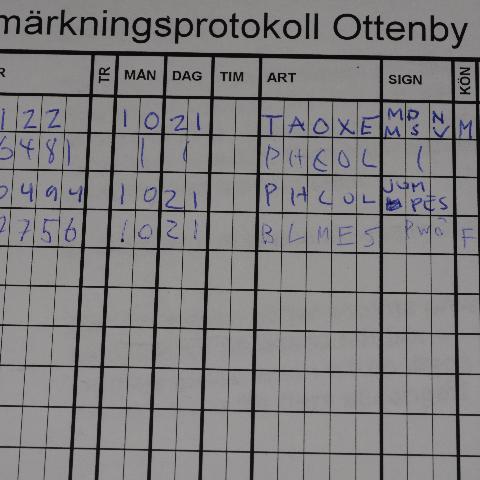 märkningsprotokoll Ottenby
R TR MÅN DAG TIM ART SIGN KÖN
122 10 21 TAOXE MD N MS V M
6481 1 1 PHCOL 1
0494 10 21 PHCOL JUM PES
2756 10 21 BLMES PWÖ F